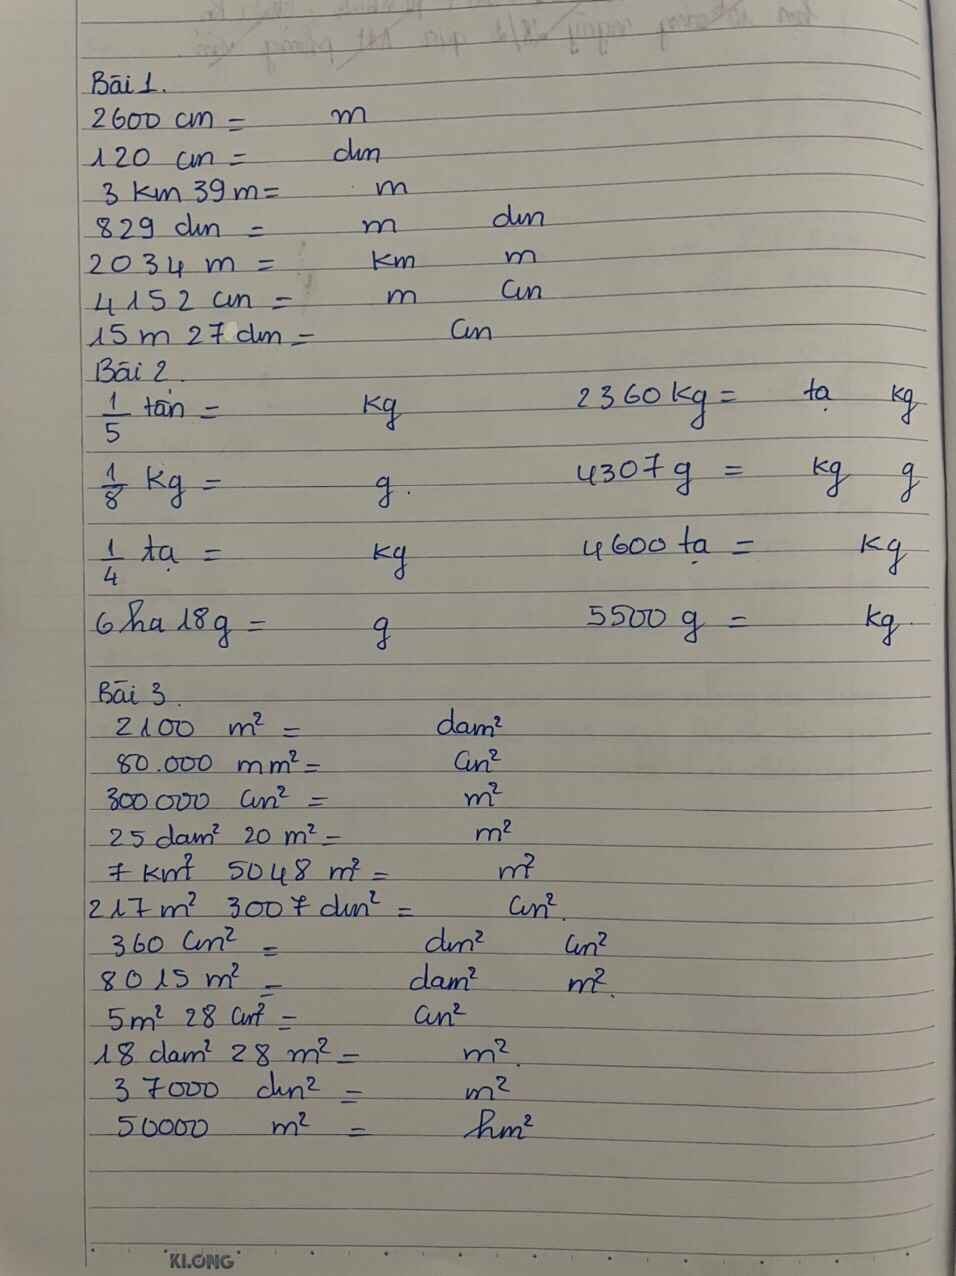 Bài 1.
2600 cm = m
120 cm = dm
3 km 39 m = m
829 dm = m dm
2034 m = km m
4152 cm = m cm
15 m 27 dm = cm
Bài 2.
1/5 tấn = kg 2360 kg = tạ kg
1/8 kg = g. 4307 g = kg g
1/4 tạ = kg 4600 tạ = kg
6 ha 18 g = g 5500 g = kg.
Bài 3.
2100 m² = dam²
80.000 mm² = cm²
300000 cm² = m²
25 dam² 20 m² = m²
7 km² 5048 m² = m²
217 m² 3007 dm² = cm².
360 cm² = dm² cm²
8015 m² = dam² m².
5m² 28 cm² = cm²
18 dam² 28 m² = m².
37000 dm² = m²
50000 m² = hm²
KLONG